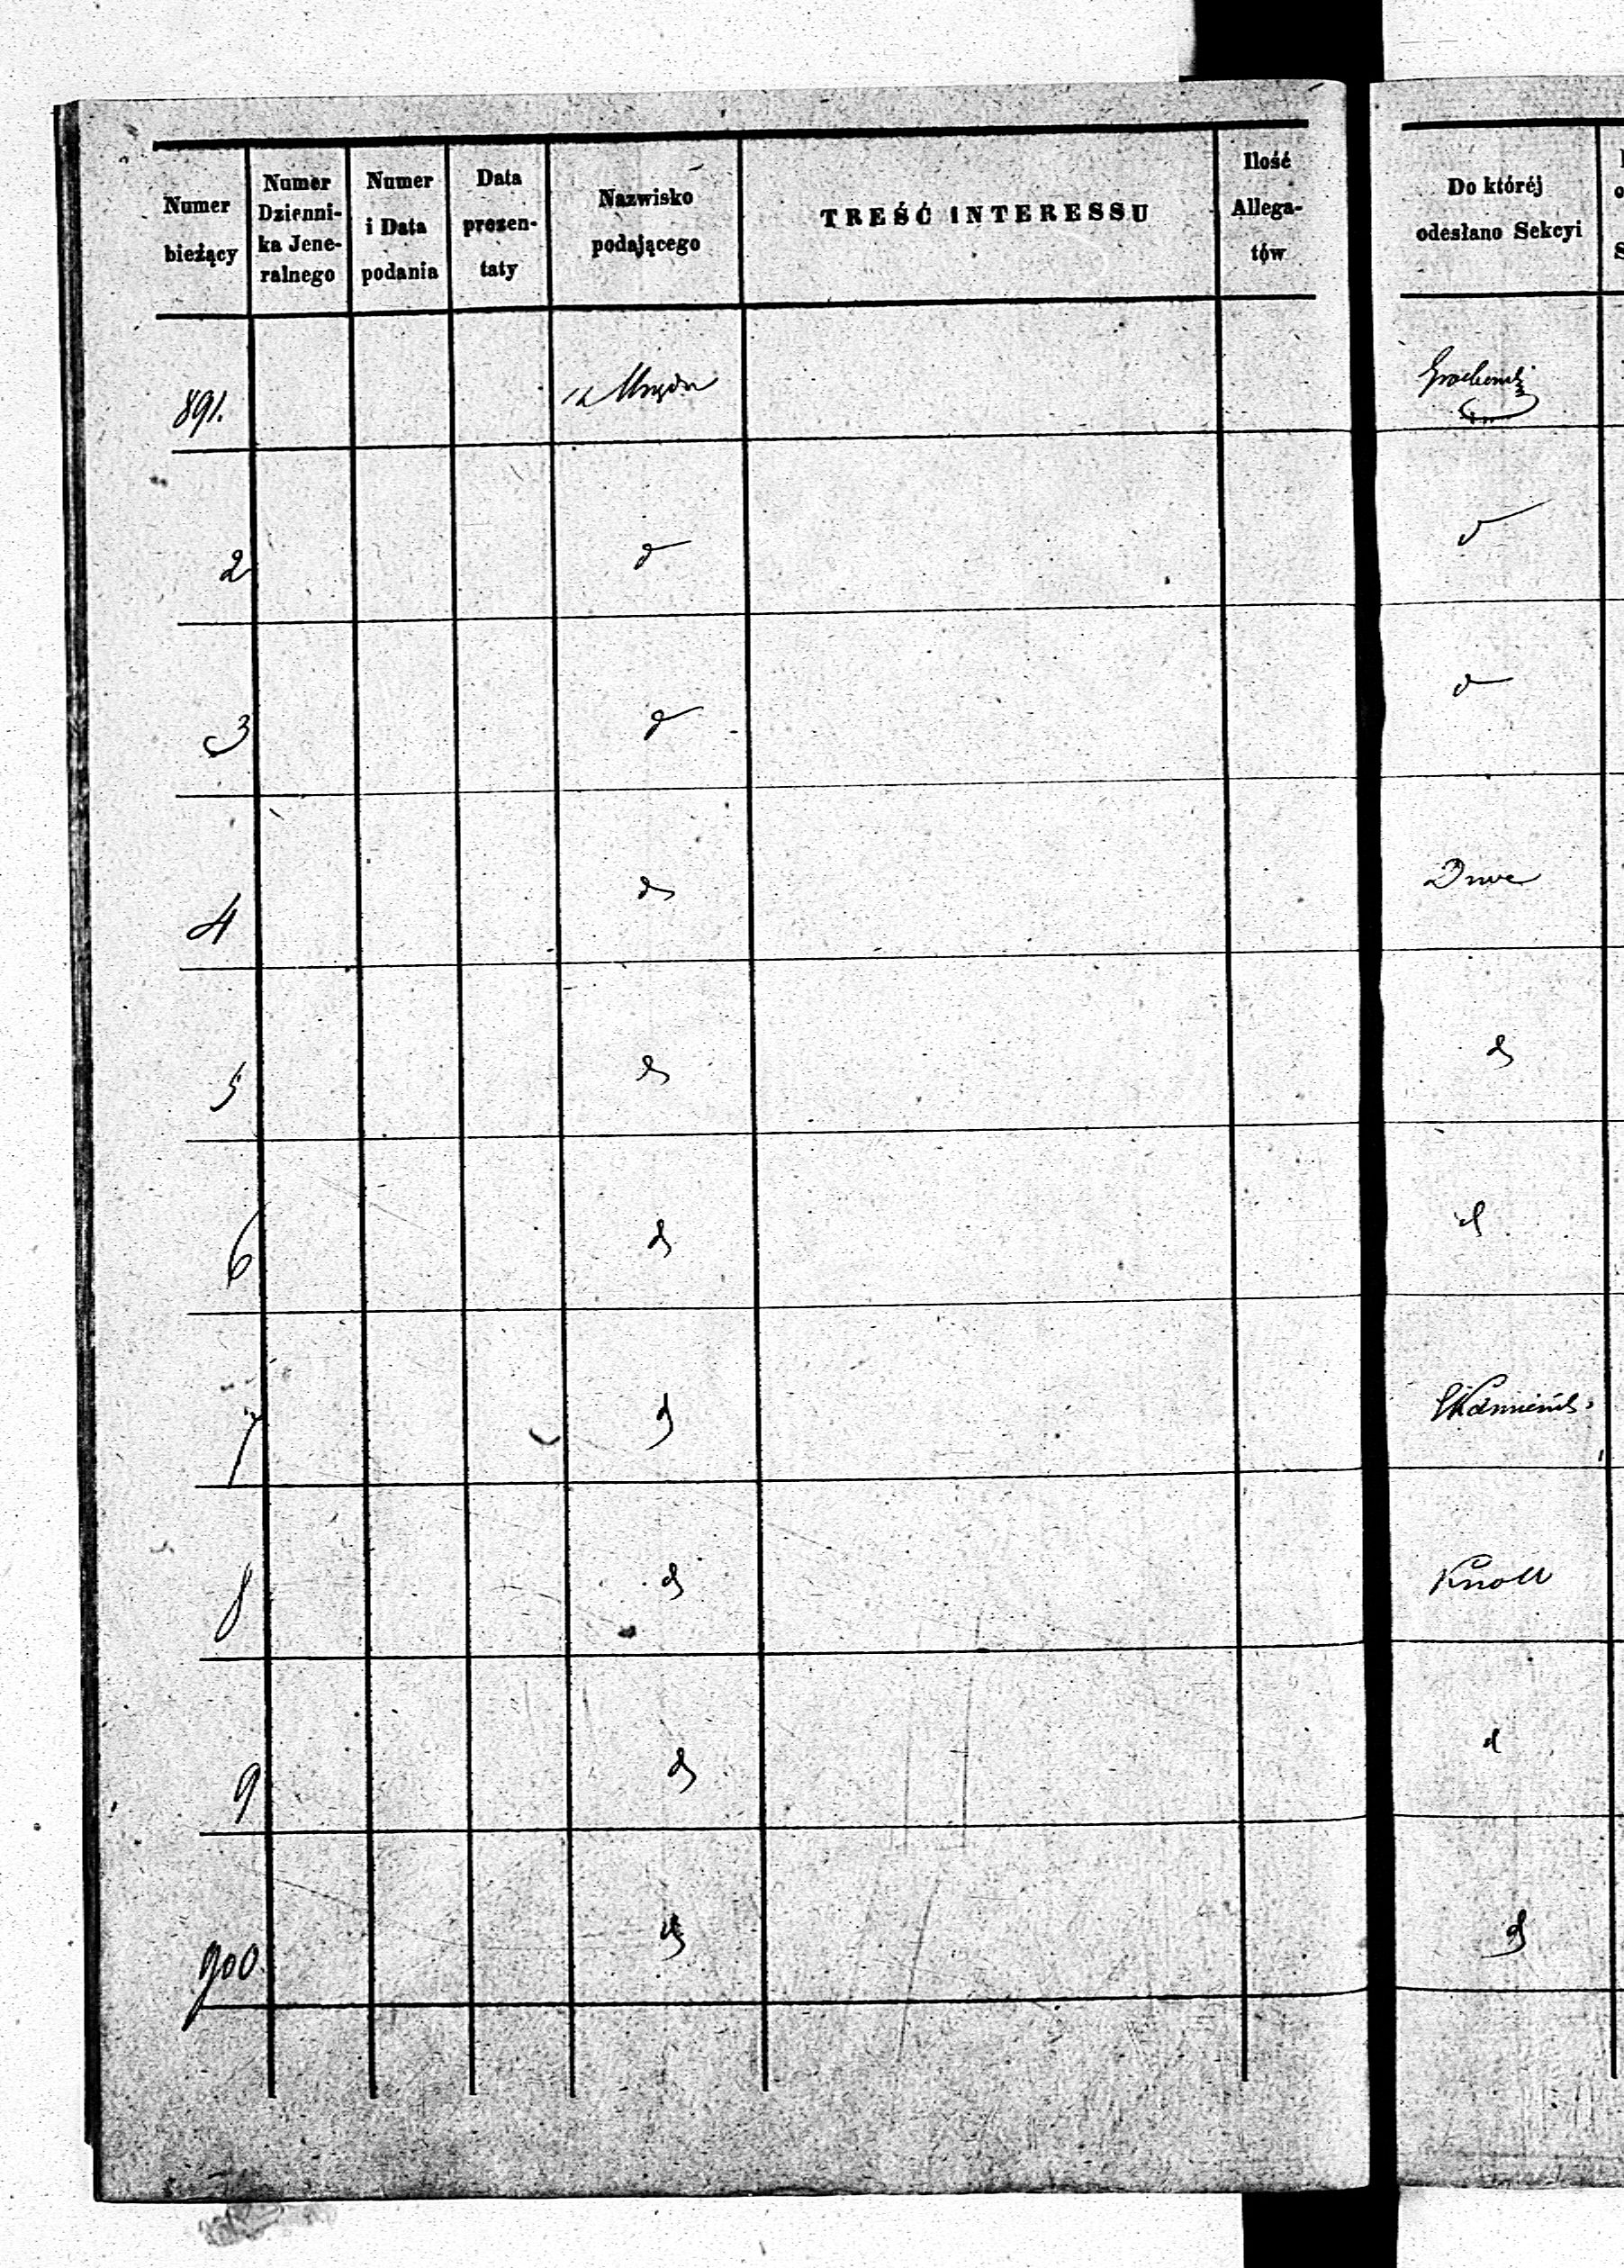 Numer
bieżący
Numer
Dzienni-
ka Jene-
ralnego
Numer
i Data
podania
Data
prezen-
taty
Nazwisko
podającego
TREŚĆ INTERESSU
Ilość
Allega-
tów
Do któréj
odesłano Sekcyi
891.
2 d d
3 d d
4 d
5 d d
6 d d
7 d
8 d Knoll
9 d d
900. d d